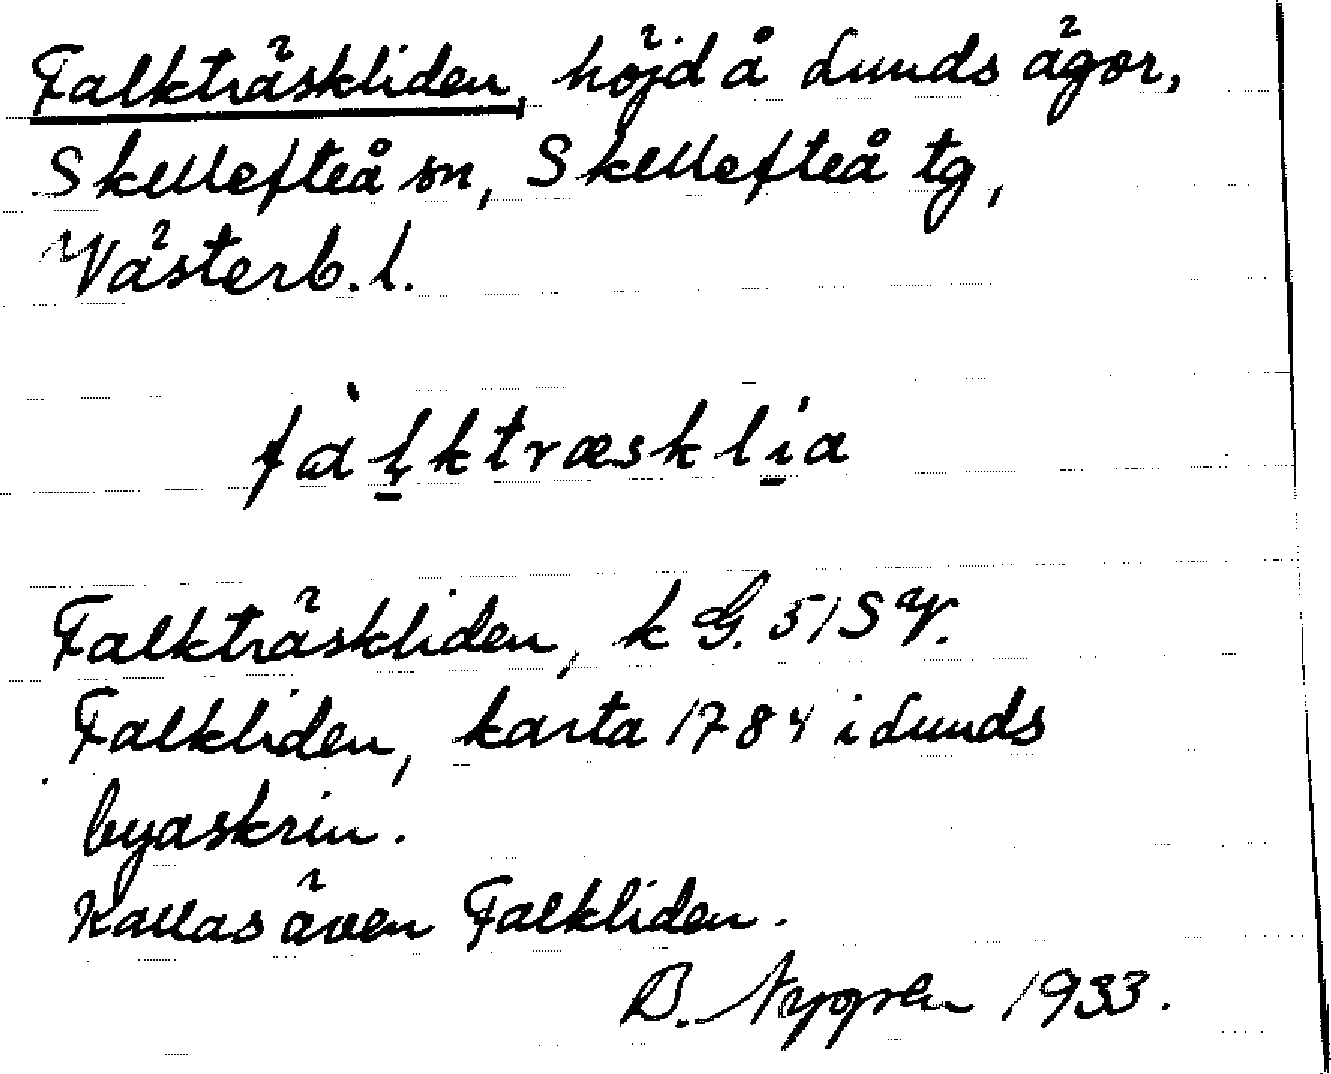 Falkträskliden, höjd å Lunds ägor,
Skellefteå sn, Skellefteå tg,
Västerb. l.
fàḷktræsklịa
Falkträskliden, k G. 51 SV.
Falkliden, karta 1784 i Lunds
byaskrin.
Kallas även Falkliden.
B. Nygren 1933.